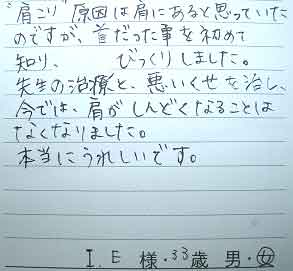 "肩こり"原因は肩にあると思っていた
のですが、首だった事を初めて
知り、 びっくりしました。
先生の治療と、悪いくせを治し、
今では、肩がしんどくなることは
なくなりました。
本当にうれしいです。
I.E 様・33歳 男・女